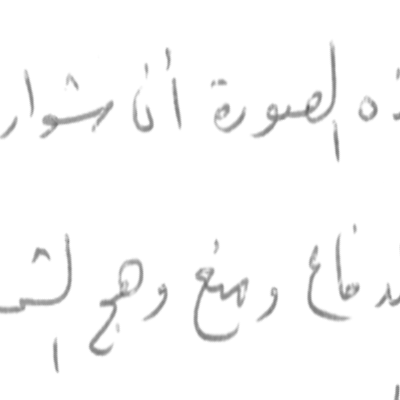 الصورة أنا شوار
دفاع ومنع وهج الشـ